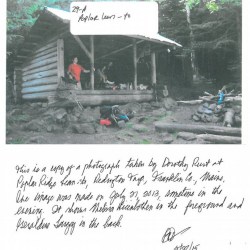 29-A
Poplar Lean-to
This is a copy of a photograph taken by Dorothy Rust at
Poplar Ridge Lean-to, Redington Twp, Franklin Co, Maine.
The image was made on July 21, 2013, sometime in the
evening. It shows Melvin in the foreground and
Geraldine Largay in the back.